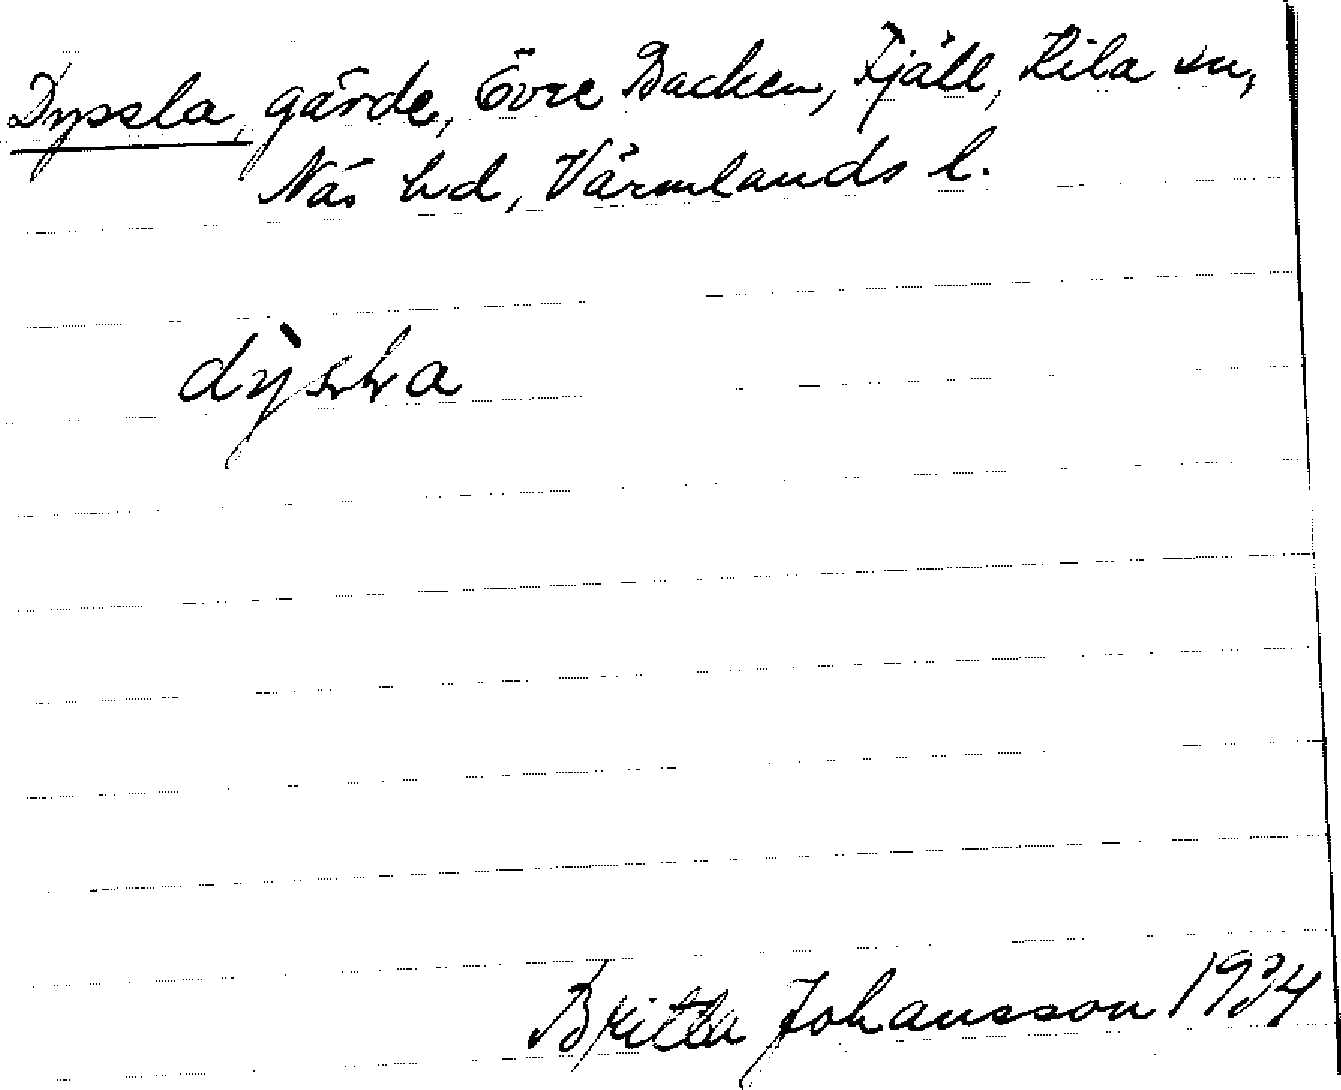 Dyssla, gärde, Övre Backen, Fjäll, Kila sn,
Näs hd, Värmlands l.
Britta Johansson 1934